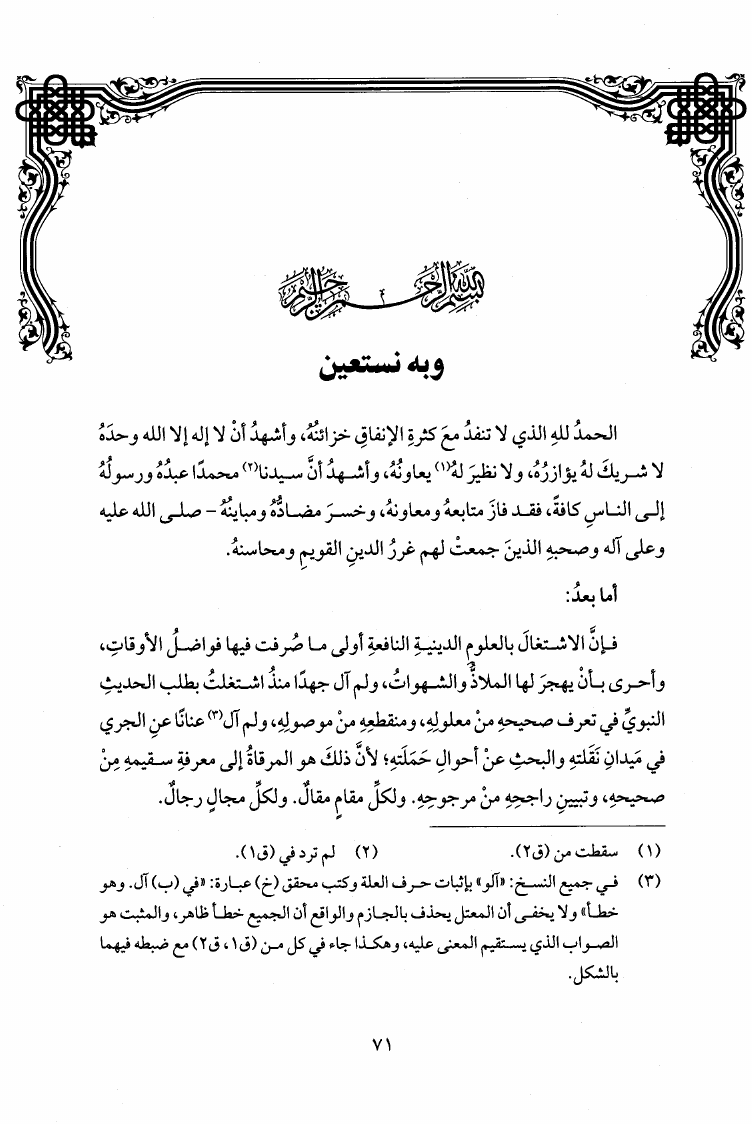 بسم الله الرحمن الرحيم
وبه نستعين
الحمدُ للهِ الذي لا تنفدُ معَ كثرةِ الإنفاقِ خزائنُهُ، وأشهدُ أنْ لا إله إلا الله وحدَهُ
لا شريكَ لهُ يؤازرُهُ، ولا نظيرَ لهُ(١) يعاونُهُ، وأشهدُ أنَّ سيدنا(٢) محمدًا عبدُهُ ورسولُهُ
إلى الناسِ كافةً، فقد فازَ متابعهُ ومعاونهُ، وخسرَ مضادُّهُ ومباينُهُ – صلى الله عليه
وعلى آله وصحبهِ الذينَ جمعتْ لهم غررُ الدينِ القويمِ ومحاسنهُ.
أما بعدُ:
فإنَّ الاشتغالَ بالعلومِ الدينيةِ النافعةِ أولى ما صُرفت فيها فواضلُ الأوقاتِ،
وأحرى بأنْ يهجرَ لها الملاذُّ والشهواتُ، ولم آل جهدًا منذُ اشتغلتُ بطلب الحديثِ
النبويِّ في تعرف صحيحهِ منْ معلولهِ، ومنقطعهِ منْ موصولهِ، ولم آل(٣) عنانًا عنِ الجري
في مَيدانِ نَقَلتهِ والبحثِ عنْ أحوالِ حَمَلَتهِ؛ لأنَّ ذلكَ هو المرقاةُ إلى معرفةِ سقيمهِ مِنْ
صحيحهِ، وتبيينِ راجحهِ منْ مرجوحهِ. ولكلِّ مقامٍ مقالٌ. ولكلِّ مجالٍ رجالٌ.
(١) سقطت من (ق٢). (٢) لم ترد في (ق١).
(٣) في جميع النسخ: «آلو» بإثبات حرف العلة وكتب محقق (خ) عبارة: «في (ب) آل. وهو
خطأ» ولا يخفى أن المعتل يحذف بالجازم والواقع أن الجميع خطأ ظاهر، والمثبت هو
الصواب الذي يستقيم المعنى عليه، وهكذا جاء في كل من (ق١، ق٢) مع ضبطه فيهما
بالشكل.
٧١